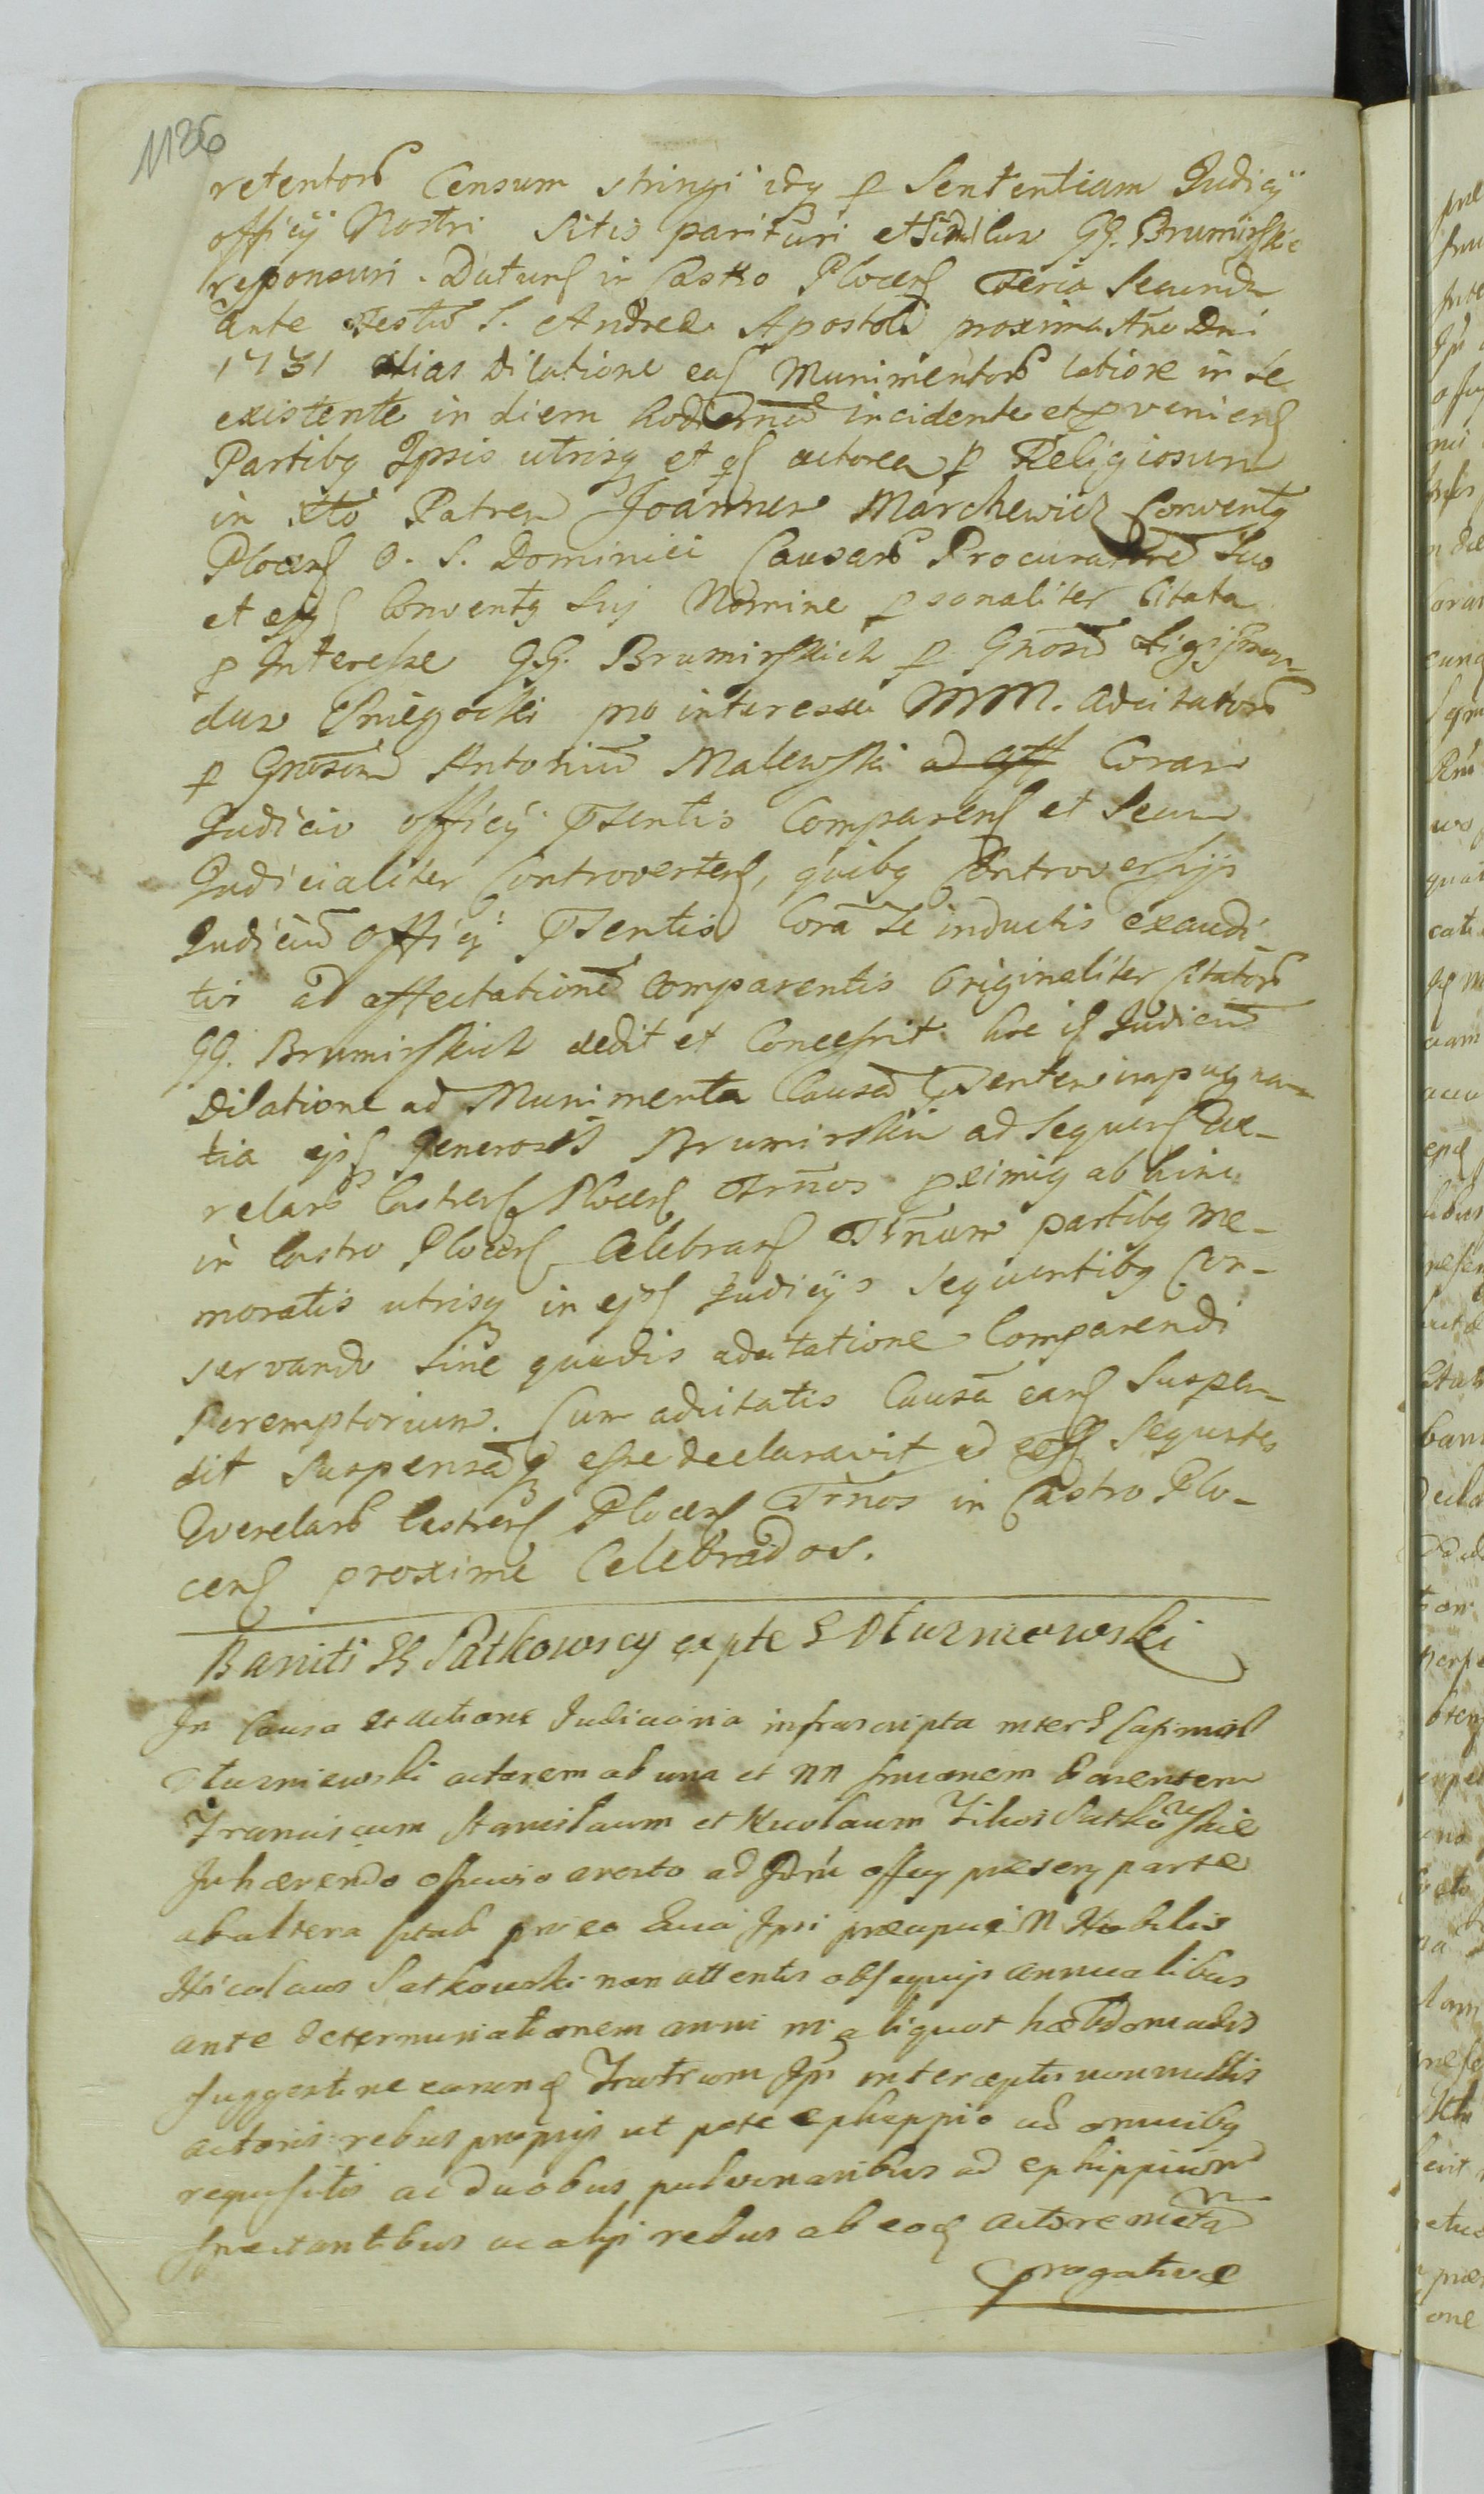 1126
retentorũ Censum stringi idq p Sententiam Judicÿ
officÿ Nostri Sitis parituri et GG. Brumirskie
responsuri. Datum in Castro Plocen Feria Secunda
ante Festũ S. Andreæ Apostoli proxima Año Dni
1731 alias Dilatione ead Munimentorũ latiore in se
existente in diem hodiernũ incidente et pvenien
Partibq Ipsis utrisq et qd actorea p Religiosum
in Xto Patrem Joannem Marchewicz Conventq
Plocen O. S. Dominici Causarũ Procuratorẽ Suo
et ejq Conventq Sui Nomine psonaliter Citata
p Interesse GG. Brumirskich p Gñosũ Sigismun-
dum Sniegocki pro interesse MM. adcitatorũ
p Gñosũm Antoniũ Malewski Coram
Judicio officÿ psentis Comparen et Secum
Judicialiter Controverten, quibq Controversijs
Judiciũ Officÿ psentis Corã se inductis exaudi-
tis ad affectationẽ Comparentis Originaliter Citatorũ
GG. Brumirskich dedit et Concessit hoc id Judiciũ
Dilationẽ ad Munimenta Causã psentem impugnan-
tia Generosis Brumirskim ad Sequen Que-
relarũ Castren Plocen Trñnos pximiq ab hinc
in Castro Plocen Celebran Trñnum partibq me-
moratis utrisq in Judicÿs Sequentibq Con-
servando Sine quavis adcitatione Comparendi
Peremptorium. Cum adcitatis Causã eand Suspen-
dit Suspensãq esse declaravit ad Sequntes
Querelarũ Castren Plocen Trñnos in Castro Plo-
cen proxime Celebrãdos.
Baniti Patkowscy ex pte Dłuzniewski
In Causa et actione Judiciaria infrascripta inter Casimirũ
Dłuzniewski actorem ab una et NN Simonem Parentem
Franciscum Stanislaum et Nicolaum Filios Patkowskie
Inhærendo officioso aresto ad officÿ præsen parte
ab altera Citatũ pro eo Quia Ipsi præcipue N Nobilis
Nicolaus Patkowski non attentis obsequijs annualibus
ante determinationem anni aliquot hæbdomadis
suggestione eorund Fratrum Ipsi interceptis nonnullis
actoris rebus propriis ut pote ephippio cũ omnibq
requisitis ac duobus pulvinaribus ad ephippium
spectantibus ac alijs rebus ab eod actore
prærogativæ